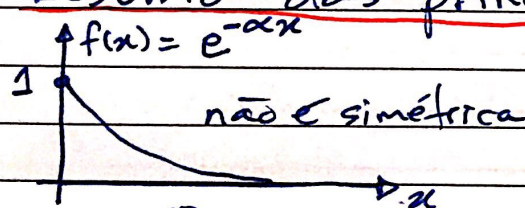 f(x) = e^{-αx}
1
não é simétrica
x